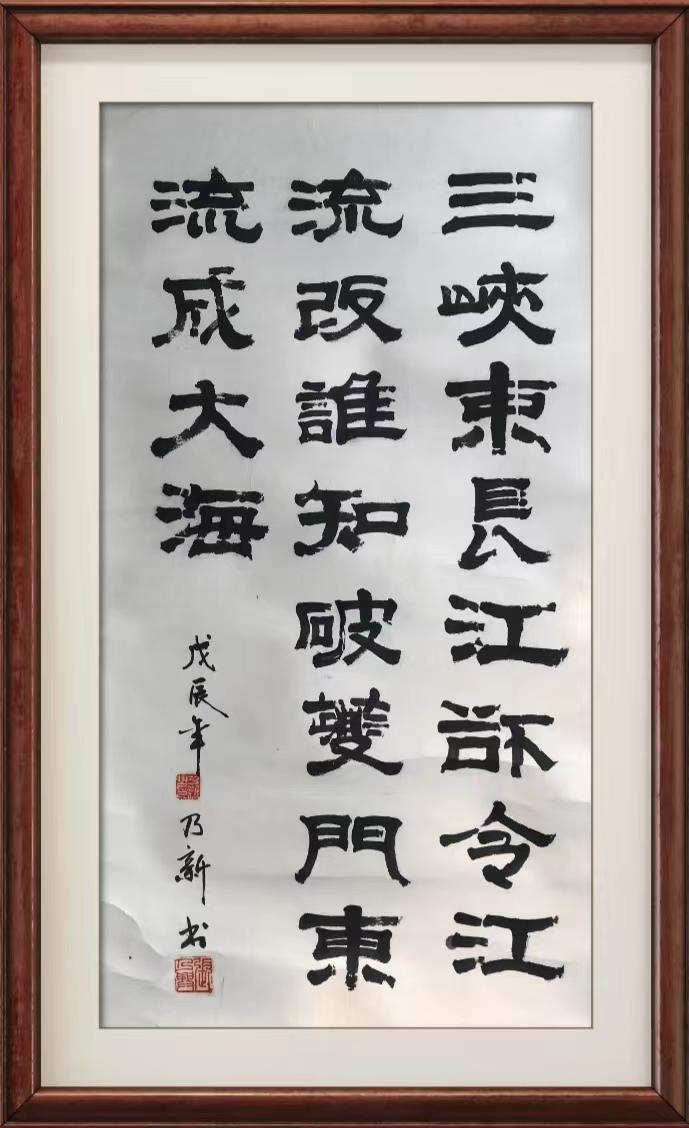 三峽束長江欲令江
流改誰知破夔門東
流成大海
戊辰年
乃新书